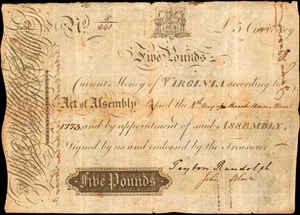 No. 5
641
£5 Curr.cy
Five Pounds
Current Money of VIRGINIA according to
Act of Assembly the
1773, and by appointment of said ASSEMBLY,
Signed by us and endorsed by the Treasurer
Peyton Randolph
John Blair
Five Pounds